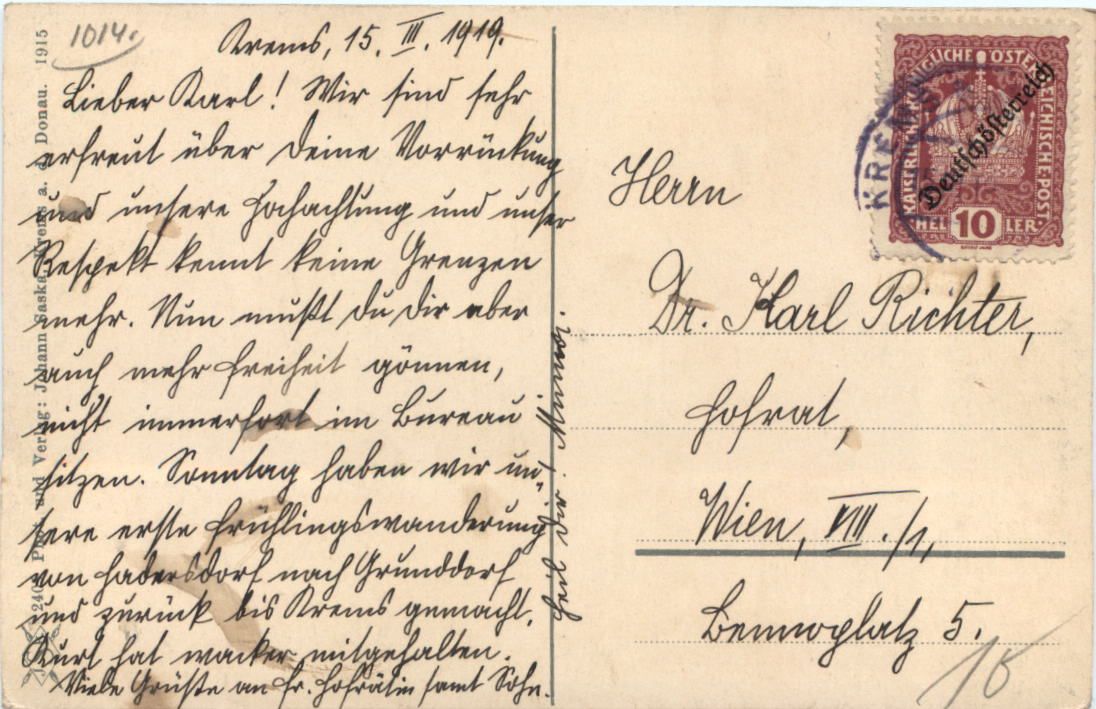 1014.
Krems, 15. III. 1919.
Lieber Karl! Wir sind sehr
erfreut über Deine Vorrückung
und unsere Hochachtung und unser
Respekt kennt keine Grenzen
mehr. Nun mußt Du Dir aber
auch mehr Freiheit gönnen,
nicht immerfort im Bureau
sitzen. Sonntag haben wir un„
sere erste Frühlingswanderung
von Hadersdorf nach Grunddorf
und zurück bis Krems gemacht.
Kurt hat wacker mitgehalten.
Viele Grüße an Fr. Hofrätin samt Sohn.
Heil Dir!
Herrn
Dr. Karl Richter,
Hofrat,
Wien, VIII./1,
Bennoplatz 5.
16
KAISERLICHE KÖNIGLICHE ÖSTERREICHISCHE POST.
Deutschösterreich
10
HELLER
KREMS
240 Photo und Verlag: Johann Saska, Krems a. d. Donau. 1915